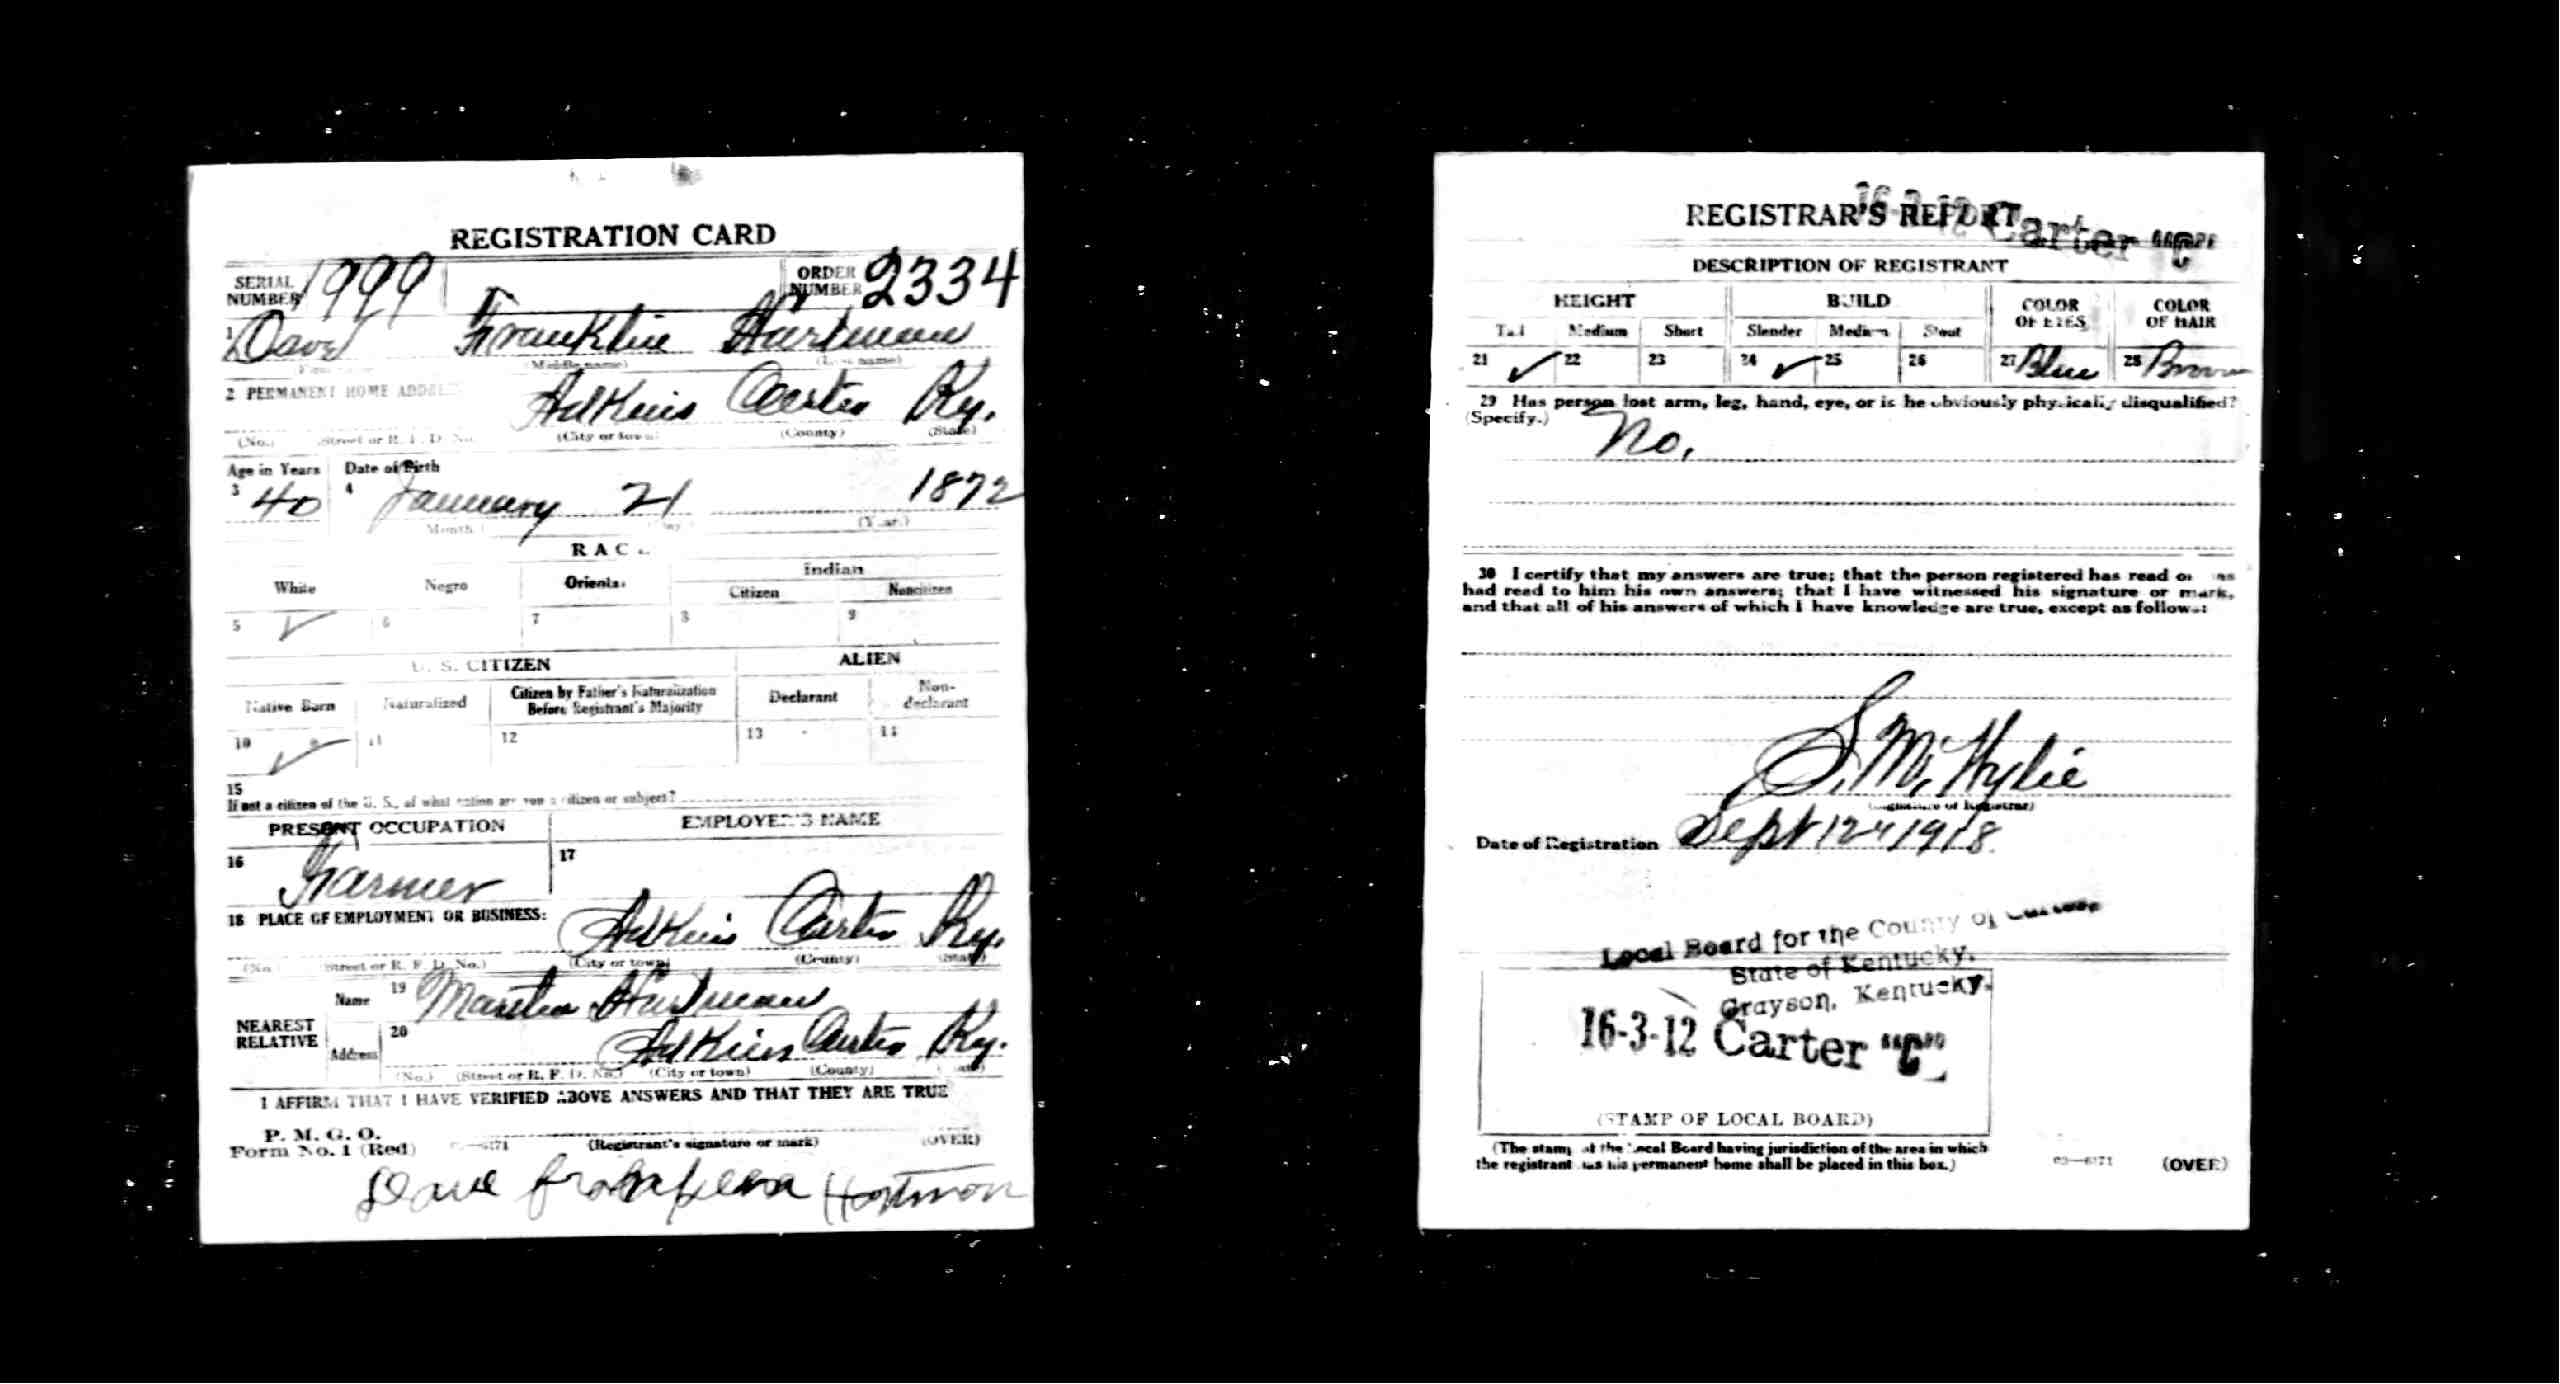 REGISTRATION CARD
SERIAL NUMBER 1999 ORDER NUMBER 2334
1 Dave Franklin Hartman
(Middle name) (Last name)
2 PERMANENT HOME ADDRESS Adkins Carter Ky.
(No.) (Street or R. F. D. No.) (City or town) (County) (State)
Age in Years Date of Birth
3 40 4 January 21 1872
(Month) (Day) (Year)
RACE
White Negro Oriental Indian
Citizen Noncitizen
5 ✓ 6 7 8 9
U. S. CITIZEN ALIEN
Native Born Naturalized Citizen by Father's Naturalization Before Registrant's Majority Declarant Non-declarant
10 ✓ 11 12 13 14
15
If not a citizen of the U. S., of what nation are you a citizen or subject?
PRESENT OCCUPATION EMPLOYER'S NAME
16 Farmer 17
18 PLACE OF EMPLOYMENT OR BUSINESS: Adkins Carter Ky.
(No.) (Street or R. F. D. No.) (City or town) (County) (State)
NEAREST RELATIVE Name 19 Martha Hartman
Address 20 Adkins Carter Ky.
(No.) (Street or R. F. D. No.) (City or town) (County) (State)
I AFFIRM THAT I HAVE VERIFIED ABOVE ANSWERS AND THAT THEY ARE TRUE
P. M. G. O.
Form No. 1 (Red) (Registrant's signature or mark) (OVER)
Dave Hartmon
REGISTRAR'S REPORT
16-3-12 Carter "C"
DESCRIPTION OF REGISTRANT
HEIGHT BUILD COLOR OF EYES COLOR OF HAIR
Tall Medium Short Slender Medium Stout
21 ✓ 22 23 24 ✓ 25 26 27 Blue 28 Brown
29 Has person lost arm, leg, hand, eye, or is he obviously physically disqualified?
(Specify.) No.
30 I certify that my answers are true; that the person registered has read or has
had read to him his own answers; that I have witnessed his signature or mark,
and that all of his answers of which I have knowledge are true, except as follows:
S. M. Hylie
(Signature of Registrar)
Date of Registration Sept 12 1918
Local Board for the County of Carter
State of Kentucky,
Grayson, Kentucky.
16-3-12 Carter "C"
(STAMP OF LOCAL BOARD)
(The stamp of the Local Board having jurisdiction of the area in which
the registrant has his permanent home shall be placed in this box.)
(OVER)